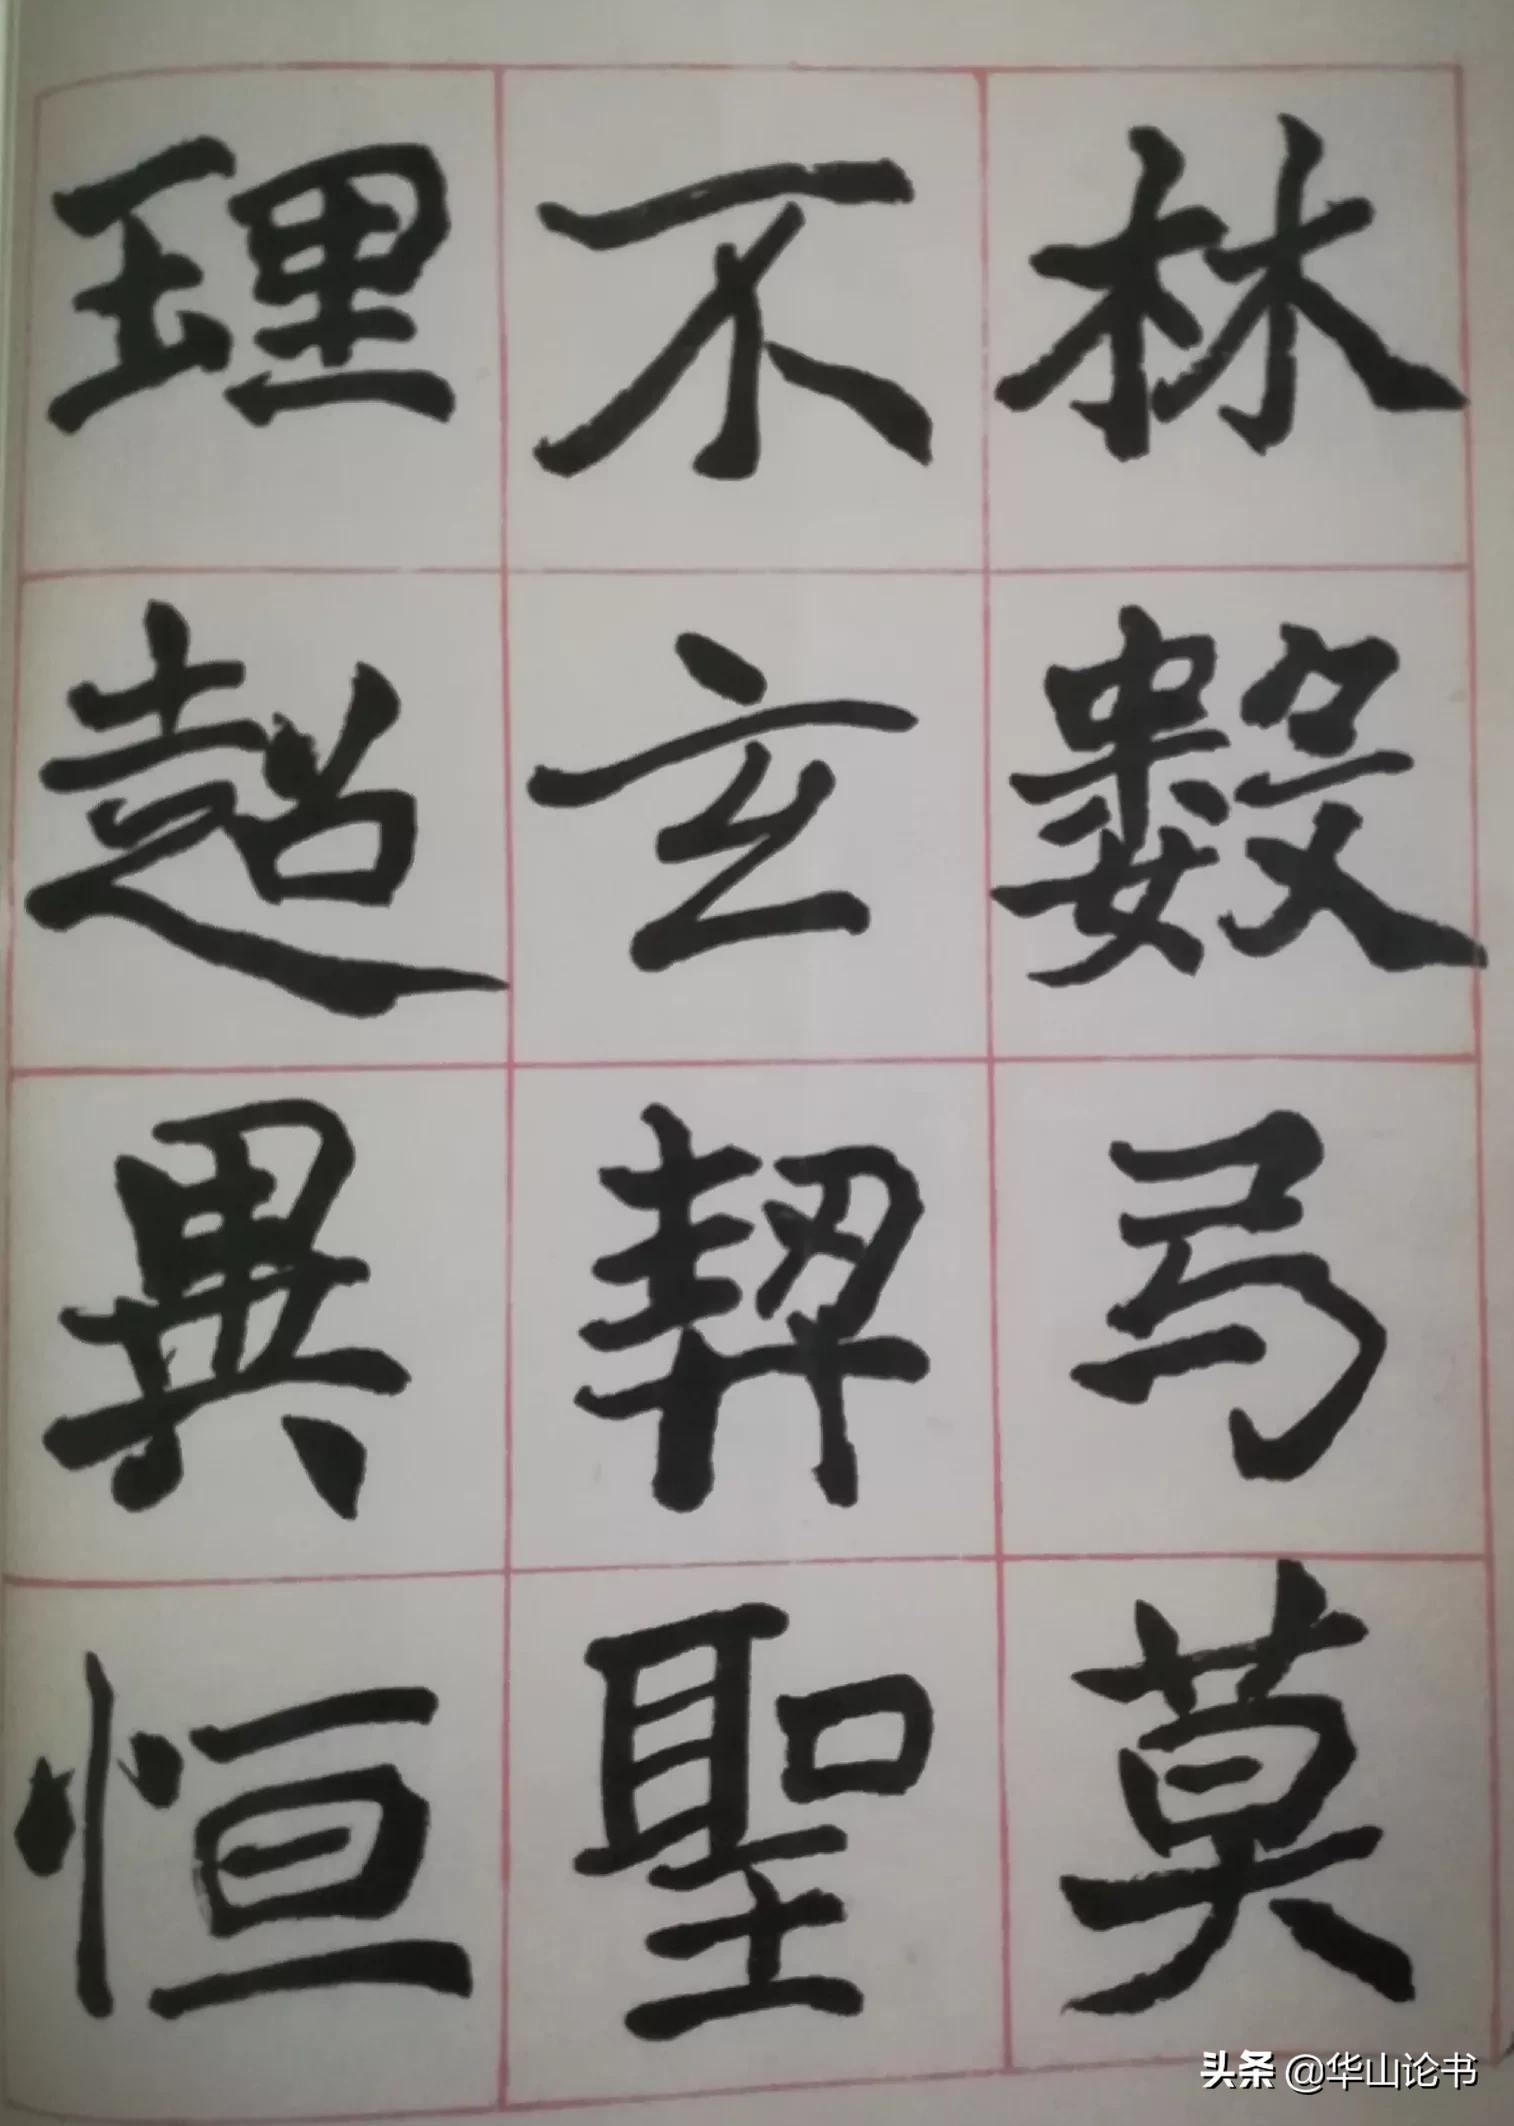 林數弓莫
不玄契聖
理超異恒
头条 @华山论书